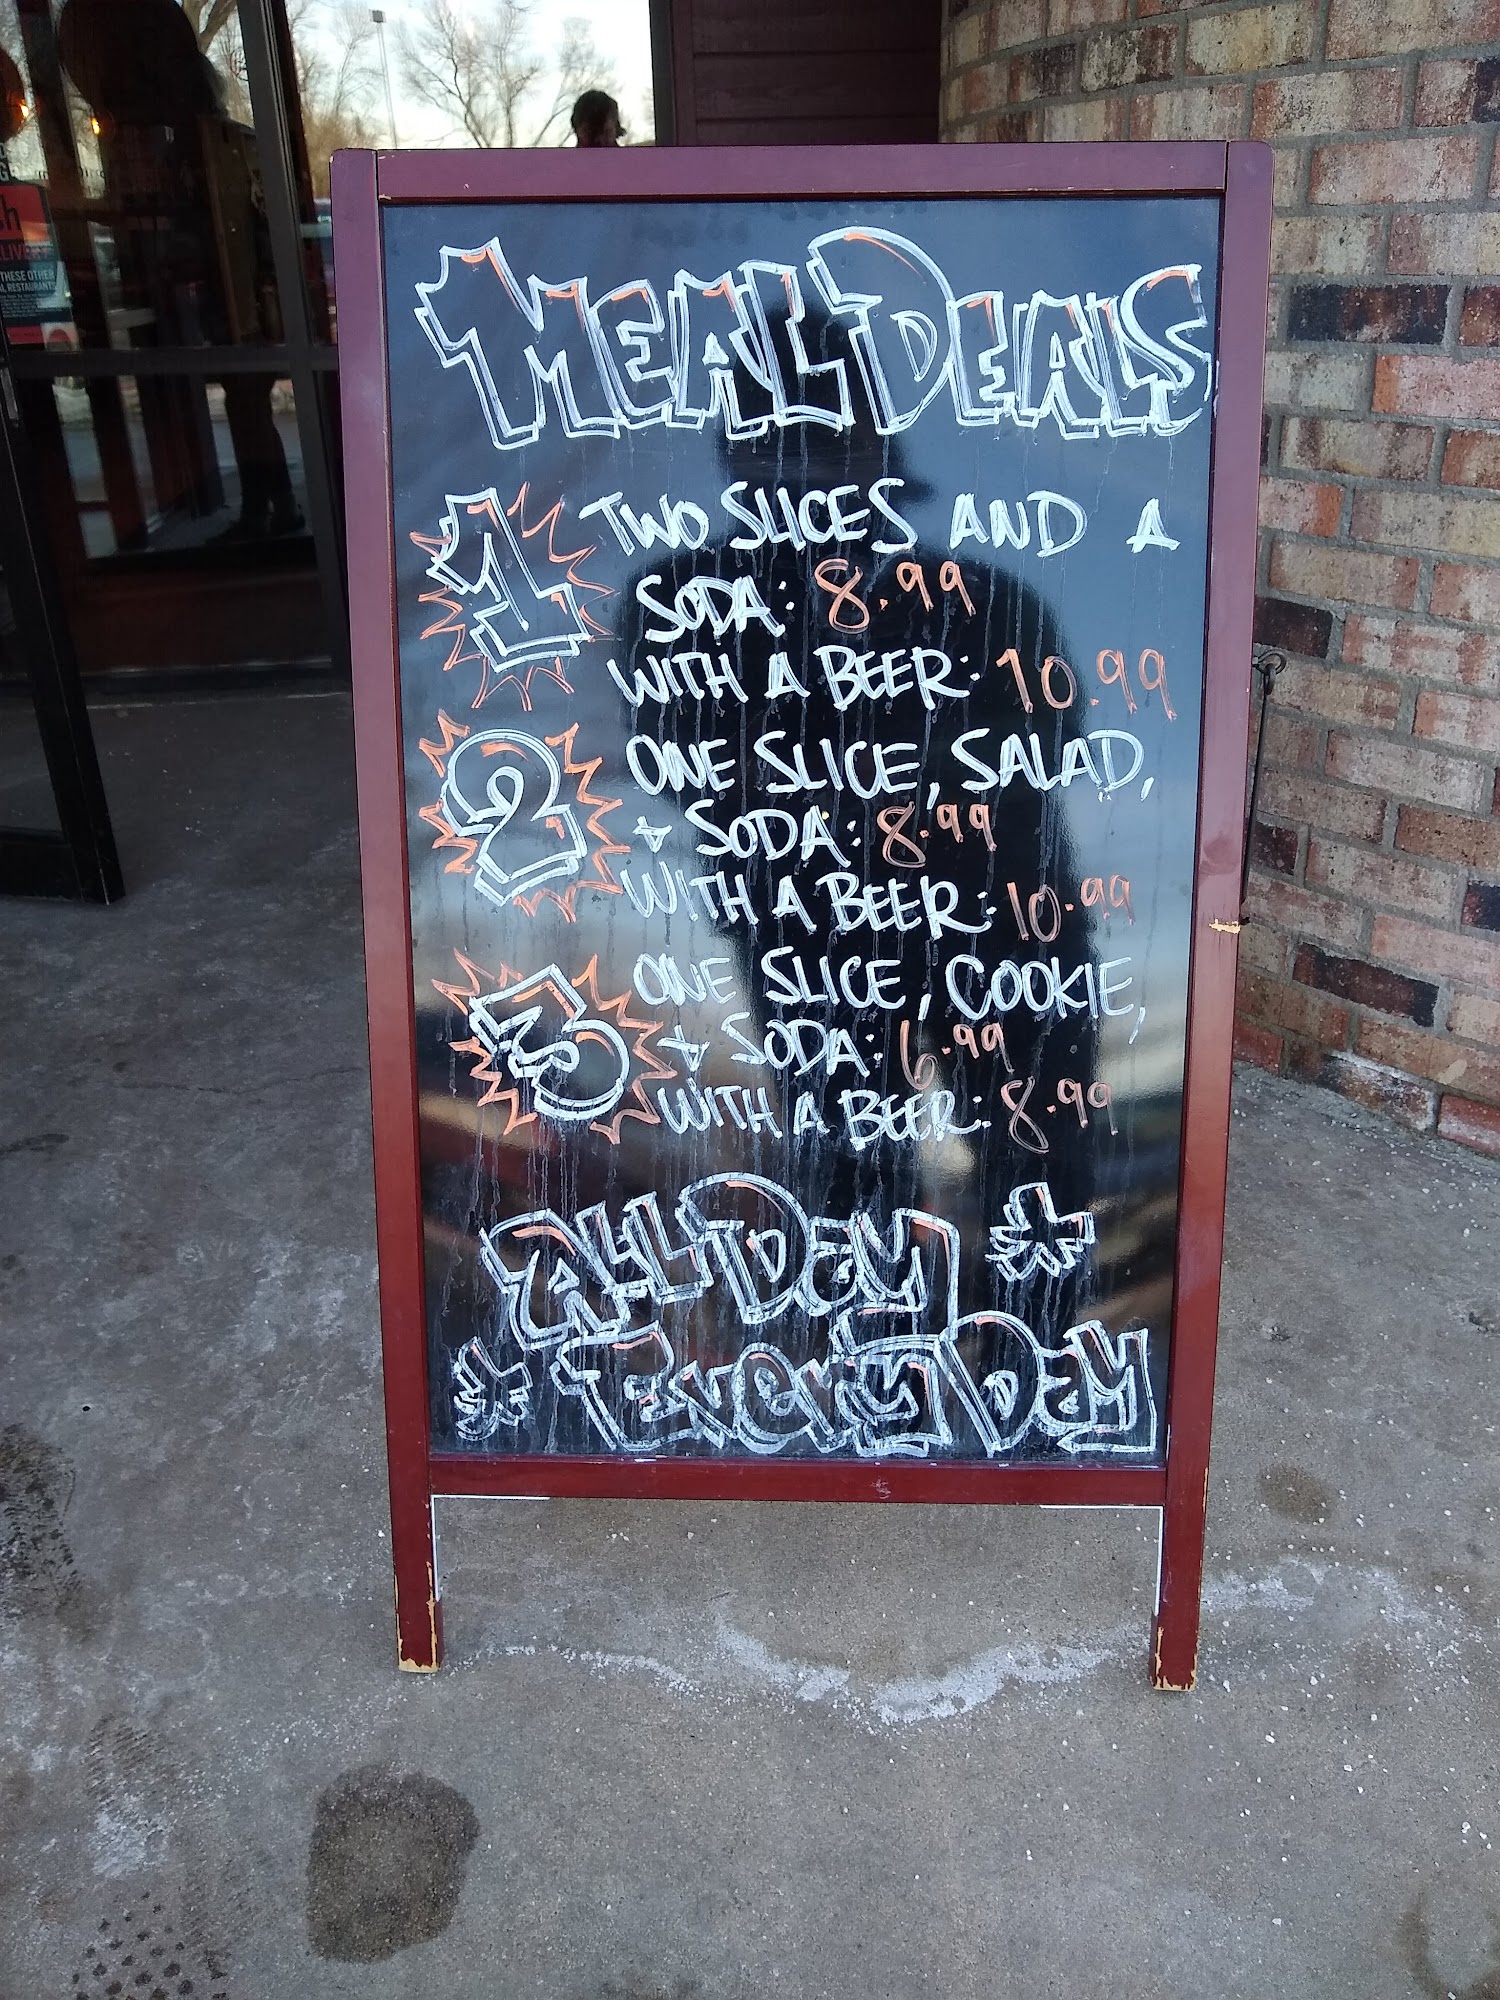 MEAL DEALS
1 TWO SLICES AND A
SODA: 8.99
WITH A BEER: 10.99
2 ONE SLICE, SALAD,
+ SODA: 8.99
WITH A BEER: 10.99
3 ONE SLICE, COOKIE,
+ SODA: 6.99
WITH A BEER: 8.99
ALL DAY *
* EVERYDAY
THESE OTHER
RESTAURANTS